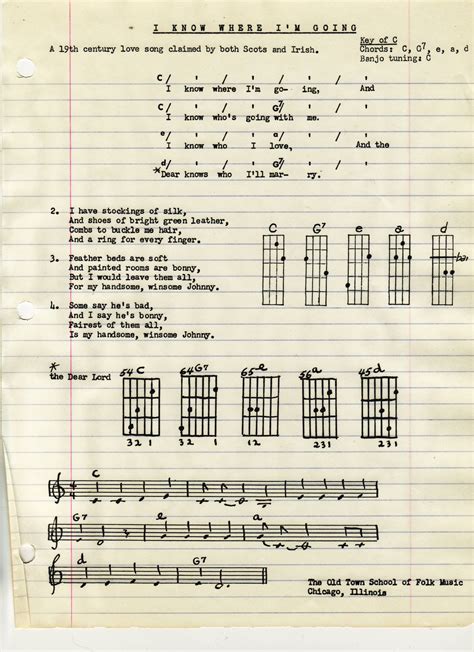 I KNOW WHERE I'M GOING
A 19th century love song claimed by both Scots and Irish.
Key of C
Chords: C, G7, e, a, d
Banjo tuning: C
C/ ' / ' / ' / '
I know where I'm go- ing, And
/ ' / ' G7/ ' / '
I know who's going with me.
e/ ' / ' a/ ' / '
I know who I love, And the
d/ ' / ' G7/ ' / '
*Dear knows who I'll mar- ry.
2. I have stockings of silk,
And shoes of bright green leather,
Combs to buckle me hair,
And a ring for every finger.
3. Feather beds are soft
And painted rooms are bonny,
But I would leave them all,
For my handsome, winsome Johnny.
4. Some say he's bad,
And I say he's bonny,
Fairest of them all,
Is my handsome, winsome Johnny.
C G7 e a d
*
the Dear Lord
54 C 64 G7 65 e 56 a 45 d
32 1 32 1 12 231 231
C
4
4
G7 e a
d G7
The Old Town School of Folk Music
Chicago, Illinois